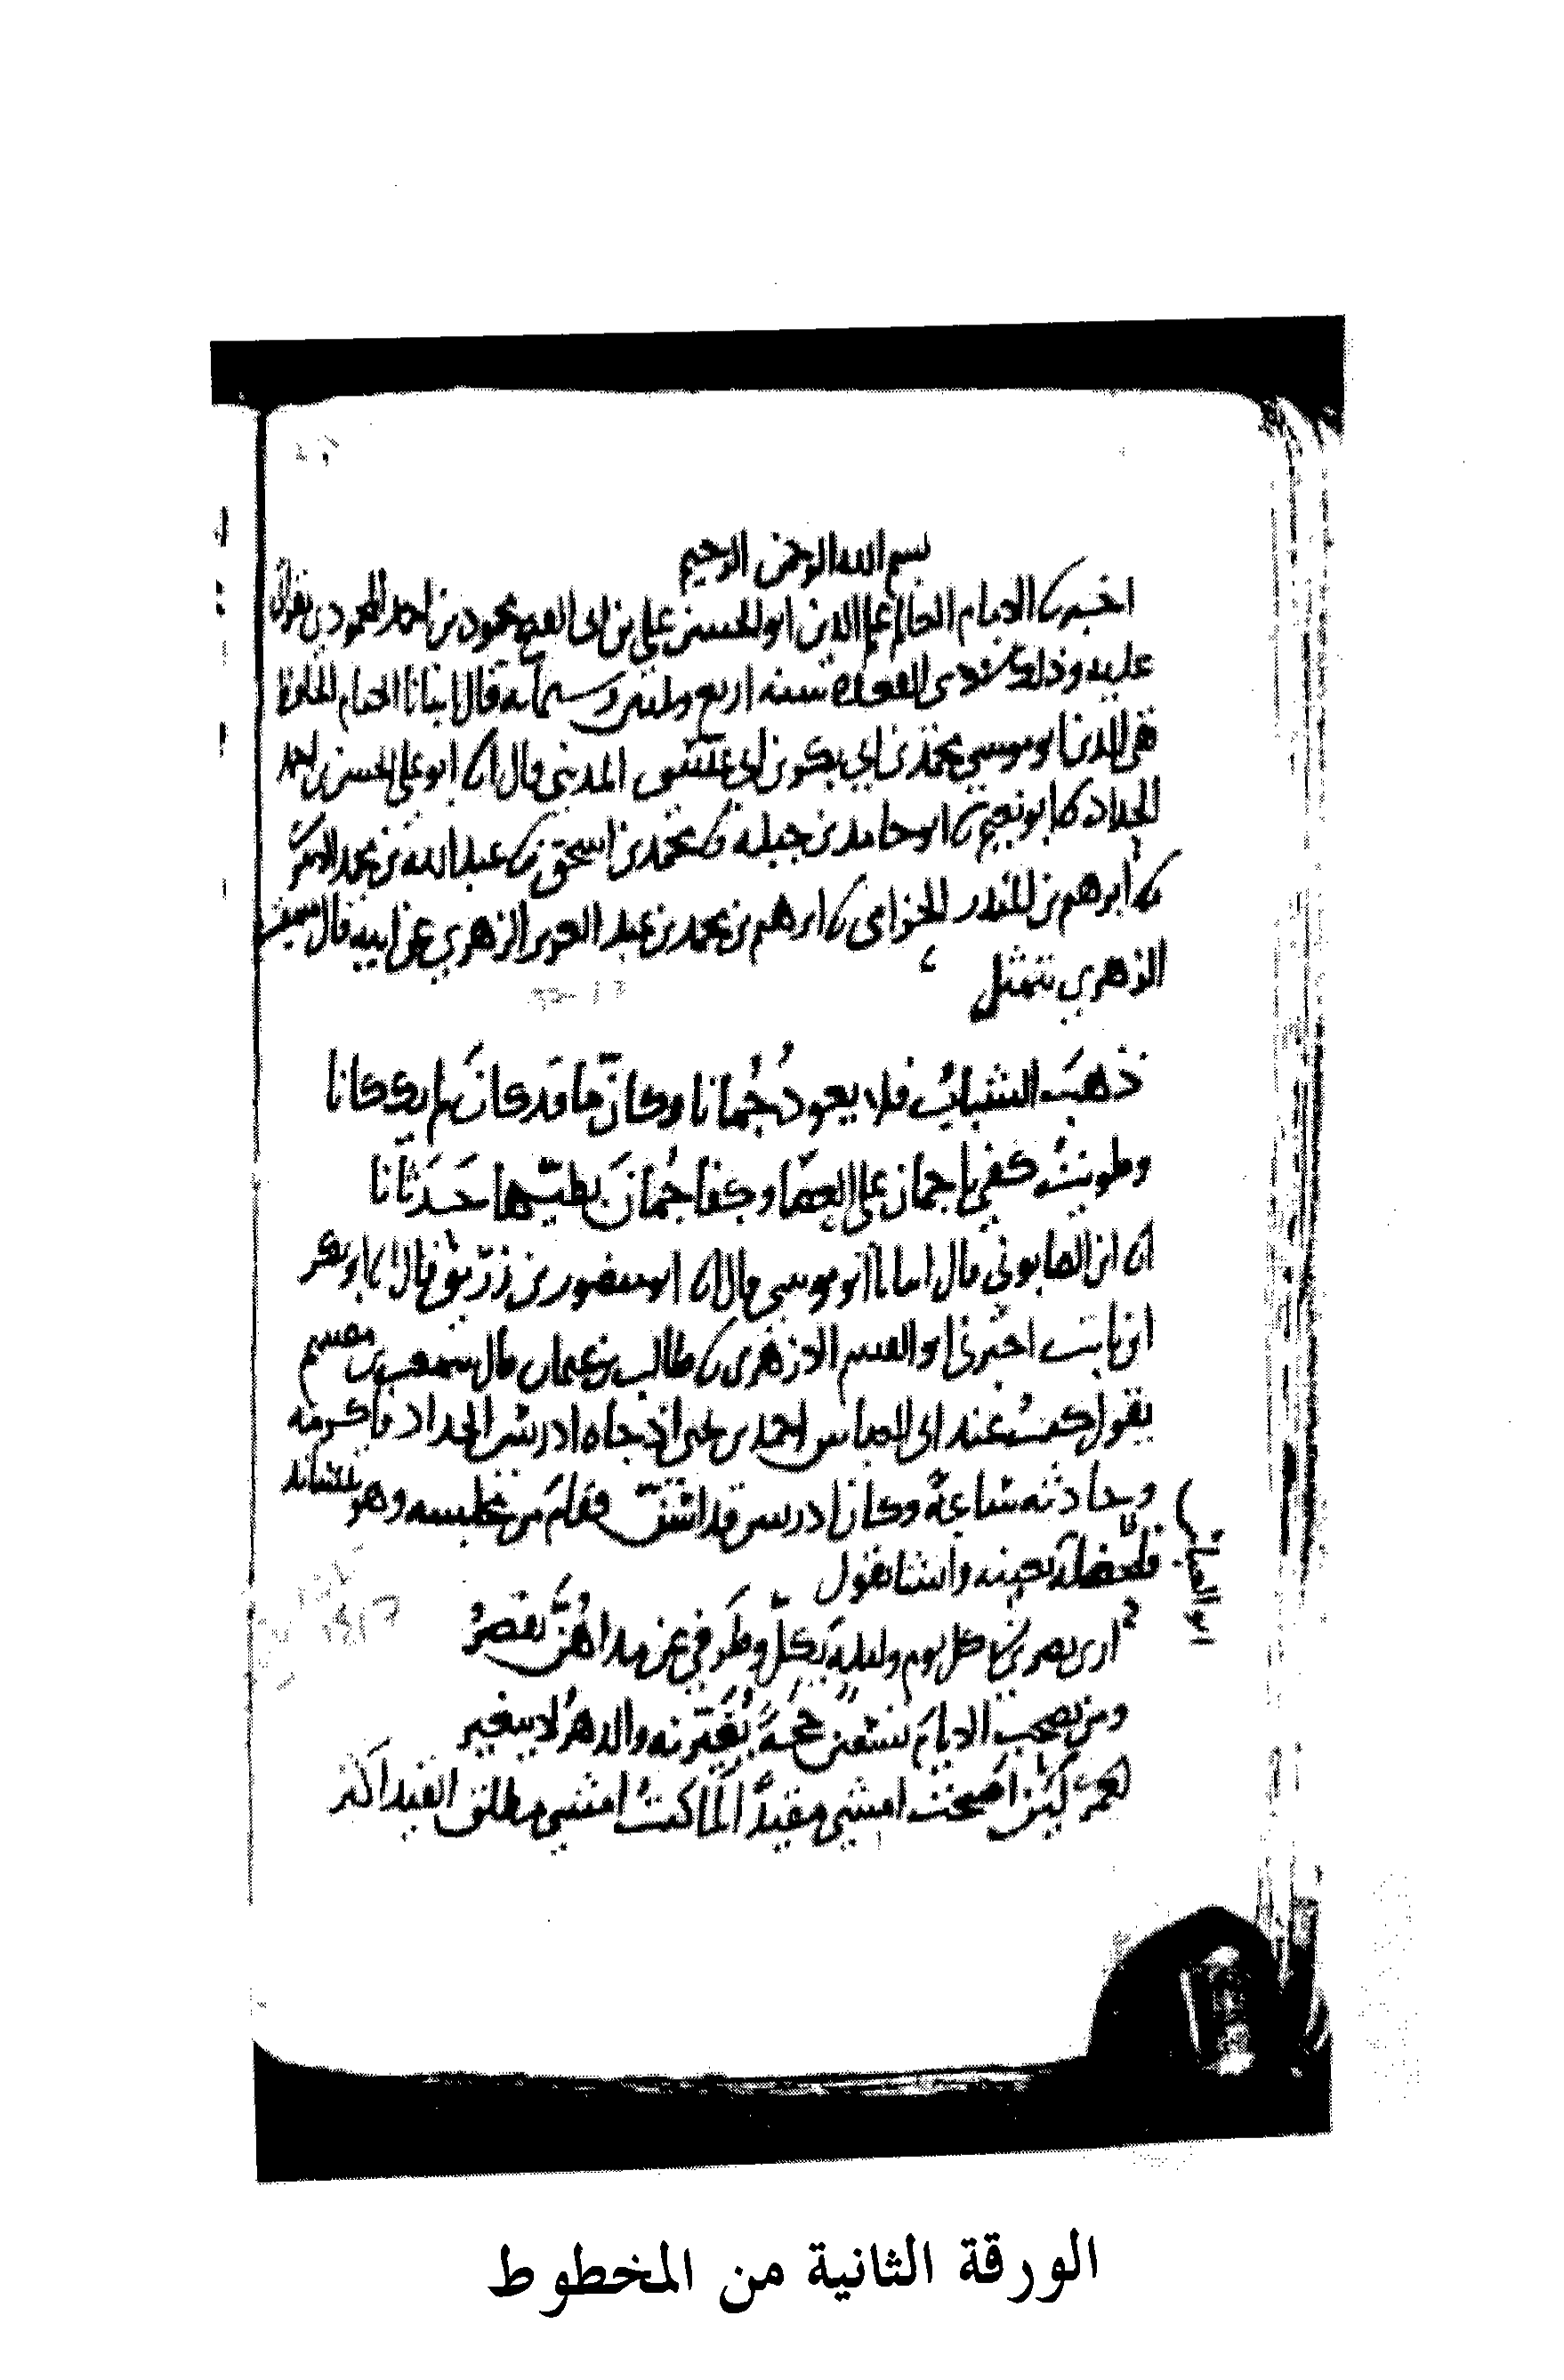 بسم الله الرحمن الرحيم
اخبرنا الامام العالم علم الدين ابو الحسن علي بن ابي الفتح محمود بن احمد المحمودي بقراتي
عليه وذلك في ذي القعدة سنه اربع وثلثين وستمايه قال انبانا الامام الحافظ
تقي الدين ابو موسي محمد بن ابي بكر بن ابي عيسى المديني قال انا ابو علي الحسن بن احمد
الحداد نا ابو نعيم نا ابو حامد بن جبله نا محمد بن اسحق نا عبد الله بن محمد
نا ابرهيم بن المنذر الحزامي نا ابرهيم بن محمد بن عبد العزيز الزهري عن ابيه قال سمعت
الزهري يتمثل
ذهبَ الشبابُ فلا يعودُ جُمانا وكانّ ما قد كانَ لم يك كانا
وطويتُ كفي يا جمان علي العصا وكفا جُمانَ بطيّها حَدَثانا
انا ابن الصابوني قال انبانا ابو موسي قال انا ابو منصور بن زريق قال انا ابو بكر
ابن ثابت اخبرني ابو القسم الازهري نا طالب بن عثمان قال سمعت بن مقسم
يقول كنتُ عند ابي العباس احمد بن يحيى اذ جاه ادريس الحداد فاكرمه
وحادثه ساعةً وكان ادريس قد اسنّ فقام من مجلسه وهو يتساند
فلحظه بعينه وانشا يقول
ابو العباس
ارى بصري في كل يوم وليلة يكلّ وطَرفي عن مداهُنّ يقصرُ
ومن يصحب الايام تسعين حجةً يُغيّرنه والدهرُ لا يتغير
لعمرى لين اصبحت امشي مقيدًا لما كنتُ امشي مطلق القيد اكثر
الورقة الثانية من المخطوط